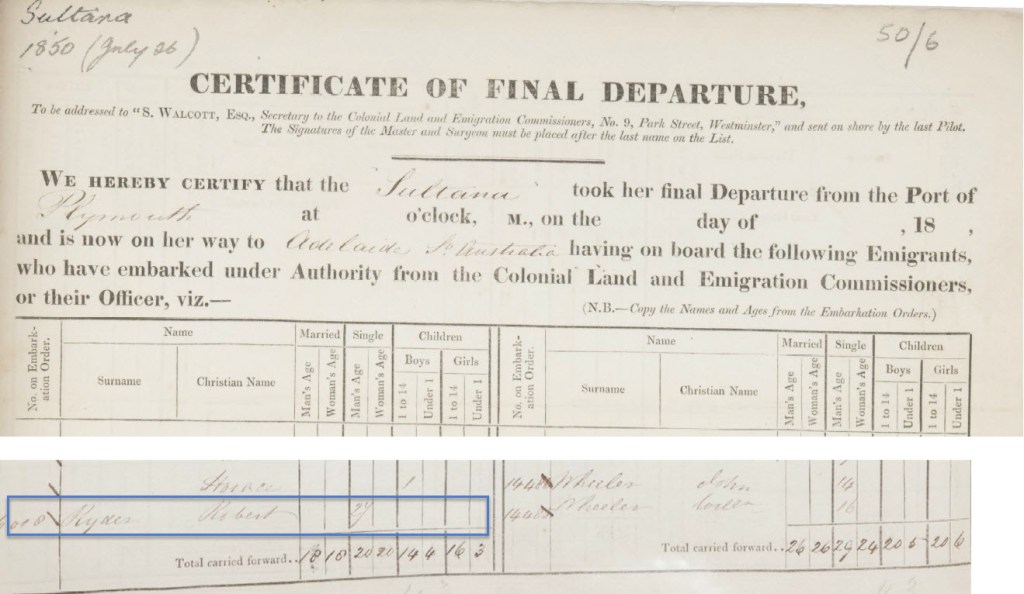 Sultana
1850 (July 26)
50/6
CERTIFICATE OF FINAL DEPARTURE,
To be addressed to "S. WALCOTT, ESQ., Secretary to the Colonial Land and Emigration Commissioners, No. 9, Park Street, Westminster," and sent on shore by the last Pilot.
The Signatures of the Master and Surgeon must be placed after the last name on the List.
WE HEREBY CERTIFY that the Sultana took her final Departure from the Port of
Plymouth at o'clock, M., on the day of , 18 ,
and is now on her way to Adelaide So. Australia having on board the following Emigrants,
who have embarked under Authority from the Colonial Land and Emigration Commissioners,
or their Officer, viz.—
(N.B.—Copy the Names and Ages from the Embarkation Orders.)
No. on Embarkation Order. Name Married Single Children No. on Embarkation Order. Name Married Single Children
Boys Girls Boys Girls
Surname Christian Name Man's Age Woman's Age Man's Age Woman's Age 1 to 14 Under 1 1 to 14 Under 1 Surname Christian Name Man's Age Woman's Age Man's Age Woman's Age 1 to 14 Under 1 1 to 14 Under 1
Horace 1 Wheeler John 14
Ryder Robert 27 Wheeler 16
Total carried forward.. 18 18 20 20 14 4 16 3 Total carried forward.. 26 26 29 24 20 5 20 6